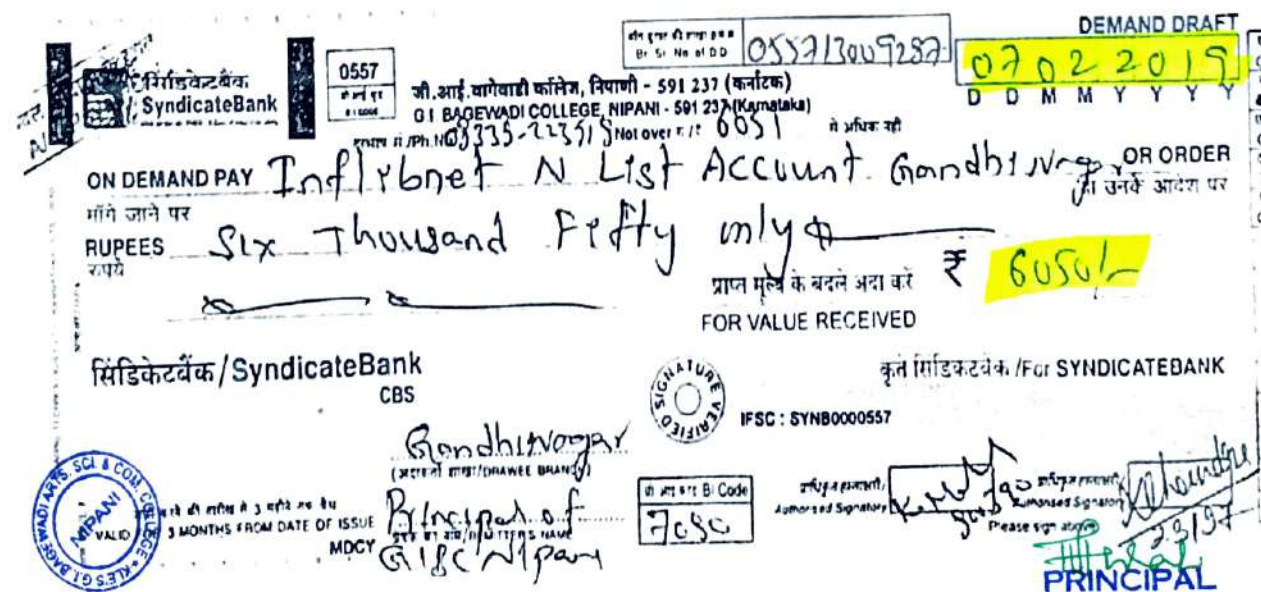 DEMAND DRAFT
Br Sr No of DD 055713009257
07022019
D D M M Y Y Y Y
सिंडिकेटबैंक
SyndicateBank
0557
जी.आई.बागेवाडी कॉलेज, निपाणी - 591 237 (कर्नाटक)
G I BAGEWADI COLLEGE, NIPANI - 591 237 (Karnataka)
Not over 6051 से अधिक नहीं
ON DEMAND PAY Inflybnet N List Account Gandhi Nagar OR ORDER
माँगे जाने पर या उनके आदेश पर
RUPEES Six Thousand Fefty only
रुपये
प्राप्त मूल्य के बदले अदा करें ₹ 6050/-
FOR VALUE RECEIVED
सिंडिकेटबैंक/SyndicateBank
CBS
कृते सिंडिकेटबैंक /For SYNDICATEBANK
SIGNATURE VERIFIED
IFSC : SYNB0000557
Gandhinagar
(अदाकर्ता शाखा/DRAWEE BRANCH)
VALID 3 MONTHS FROM DATE OF ISSUE
Principal of
MDCY GIBC Nipani
Bl Code
7090
प्राधिकृत हस्ताक्षरी/ Authorised Signatory
प्राधिकृत हस्ताक्षरी/ Authorised Signatory
Please sign above
KLE'S G.I. BAGEWADI ARTS, SCI. & COM. COLLEGE
NIPANI
PRINCIPAL